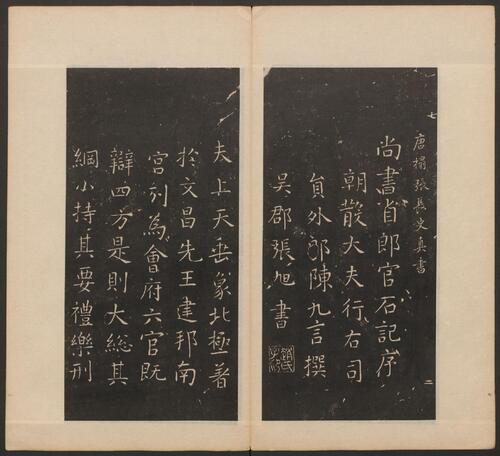 七
唐搨張長史真書
尚書省郎官石記序
朝散大夫行右司
員外郎陳九言撰
吳郡張旭書
二
夫上天垂象北極著
於文昌先王建邦南
宮列為會府六官既
辯四方是則大總其
綱小持其要禮樂刑